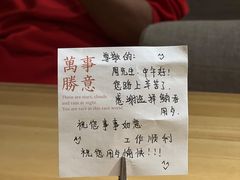 萬事
勝意
There are stars, clouds
and rain at night.
You are rain in this vast world.
尊敬的:
周先生,中午好!
您路上辛苦了.
感谢选择纳吾
用夕.
祝您事事如意
工作顺利
祝您用餐愉快!!!